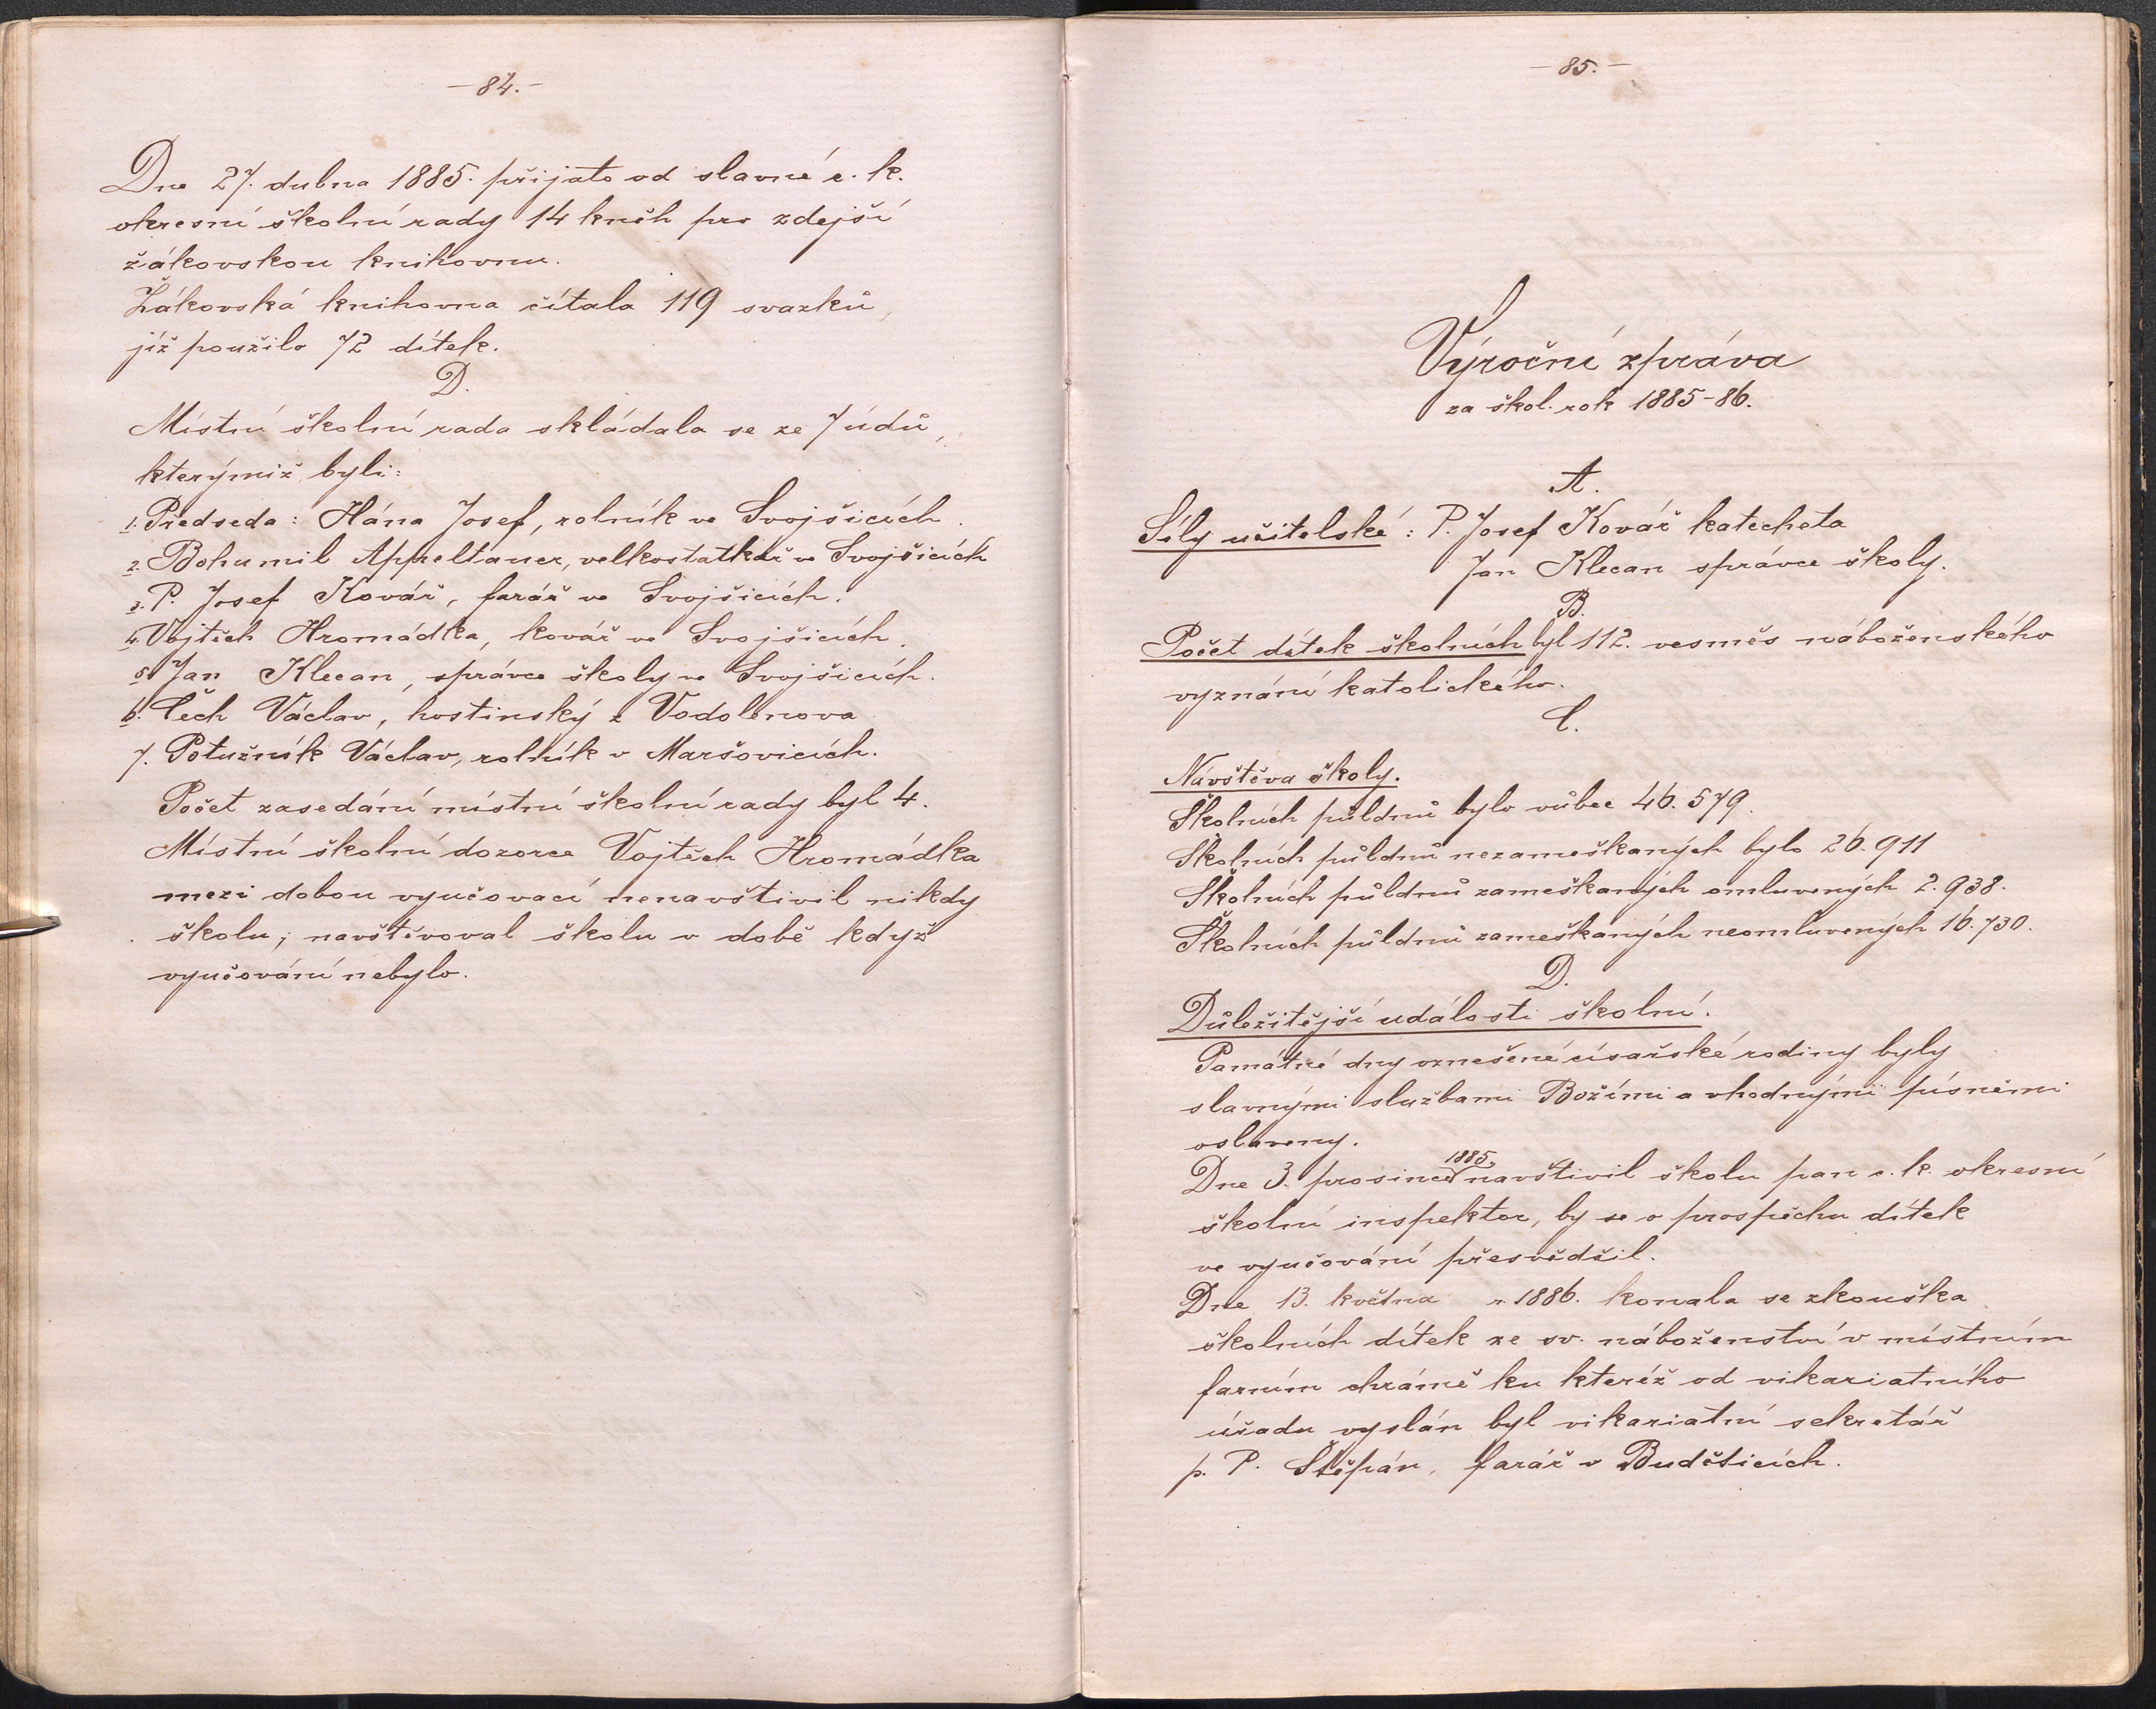 — 84. —
Dne 27. dubna 1885. přijato od slavné c. k.
okresní školní rady 14 kněh pro zdejší
žákovskou knihovnu.
Žákovská knihovna čítala 119 svazků,
jíž použilo 72 dítek.
D.
Místní školní rada skládala se ze 7 údů,
kterýmiž byli:
1. Předseda: Hána Josef, rolník ve Svojšicích.
2. Bohumil Appeltauer, velkostatkář ve Svojšicích
3. P. Josef Kovář, farář ve Svojšicích.
4. Vojtěch Hromádka, kovář ve Svojšicích.
5. Jan Klecan, správce školy ve Svojšicích.
6. Čech Václav, hostinský z Vodolenova
7. Potužník Václav, rolník v Maršovicích.
Počet zasedání místní školní rady byl 4.
Místní školní dozorce Vojtěch Hromádka
mezi dobou vyučovací nenavštivil nikdy
školu; navštěvoval školu v době když
vyučování nebylo.
— 85. —
Výroční zpráva
za škol. rok 1885-86.
A.
Síly učitelské: P. Josef Kovář katecheta
Jan Klecan správce školy.
B.
Počet dítek školních byl 112. vesměs náboženského
vyznání katolického.
C.
Návštěva školy.
Školních půldnů bylo vůbec 46.579.
Školních půldnů nezameškaných bylo 26.911
Školních půldnů zameškaných omluvených 2.938.
Školních půldnů zameškaných neomluvených 16.730.
D.
Důležitější události školní.
Památné dny vznešené císařské rodiny byly
slavnými službami Božími a vhodnými písněmi
oslaveny.
Dne 3. prosince 1885 navštivil školu pan c. k. okresní
školní inspektor, by se o prospěchu dítek
ve vyučování přesvědčil.
Dne 13. května r 1886. konala se zkouška
školních dítek ze sv. náboženství v místním
farním chrámě ku kteréž od vikariatního
úřadu vyslán byl vikariatní sekretář
p. P. Štěpán, farář v Buděticích.